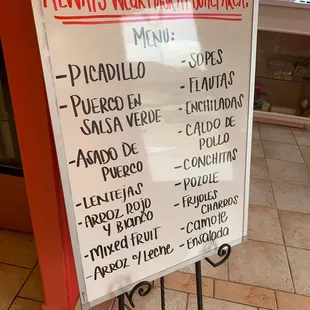 ALWAYS WEAR MASK
MENU:
-PICADILLO
-PUERCO EN
SALSA VERDE
-ASADO DE
PUERCO
-LENTEJAS
-ARROZ ROJO
Y BLANCO
-MIXED FRUIT
-ARROZ c/LECHE
-SOPES
-FLAUTAS
-ENCHILADAS
-CALDO DE
POLLO
-CONCHITAS
-POZOLE
-FRIJOLES
CHARROS
-CAMOTE
-ENSALADA